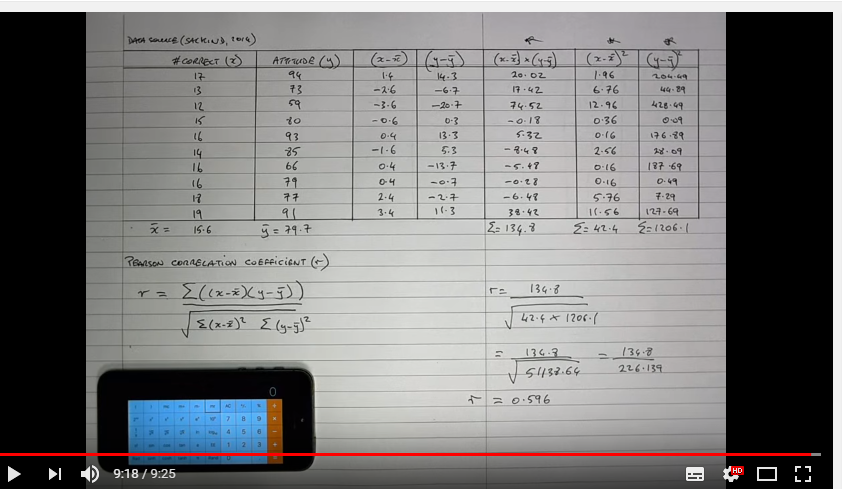 DATA SOURCE (SACKIND, 2014)
# CORRECT (x) ATTITUDE (y) (x-x̄) (y-ȳ) (x-x̄) × (y-ȳ) (x-x̄)² (y-ȳ)²
17 94 1.4 14.3 20.02 1.96 204.49
13 73 -2.6 -6.7 17.42 6.76 44.89
12 59 -3.6 -20.7 74.52 12.96 428.49
15 80 -0.6 0.3 -0.18 0.36 0.09
16 93 0.4 13.3 5.32 0.16 176.89
14 85 -1.6 5.3 -8.48 2.56 28.09
16 66 0.4 -13.7 -5.48 0.16 187.69
16 79 0.4 -0.7 -0.28 0.16 0.49
18 77 2.4 -2.7 -6.48 5.76 7.29
19 91 3.4 11.3 38.42 11.56 127.69
x̄ = 15.6 ȳ = 79.7 Σ= 134.8 Σ= 42.4 Σ=1206.1
PEARSON CORRELATION COEFFICIENT (r)
r = Σ((x-x̄)(y-ȳ)) / √Σ(x-x̄)² Σ(y-ȳ)²
r = 134.8 / √42.4 × 1206.1
= 134.8 / √51138.64 = 134.8 / 226.139
r = 0.596
0
7 8 9
4 5 6
1 2 3
9:18 / 9:25
HD